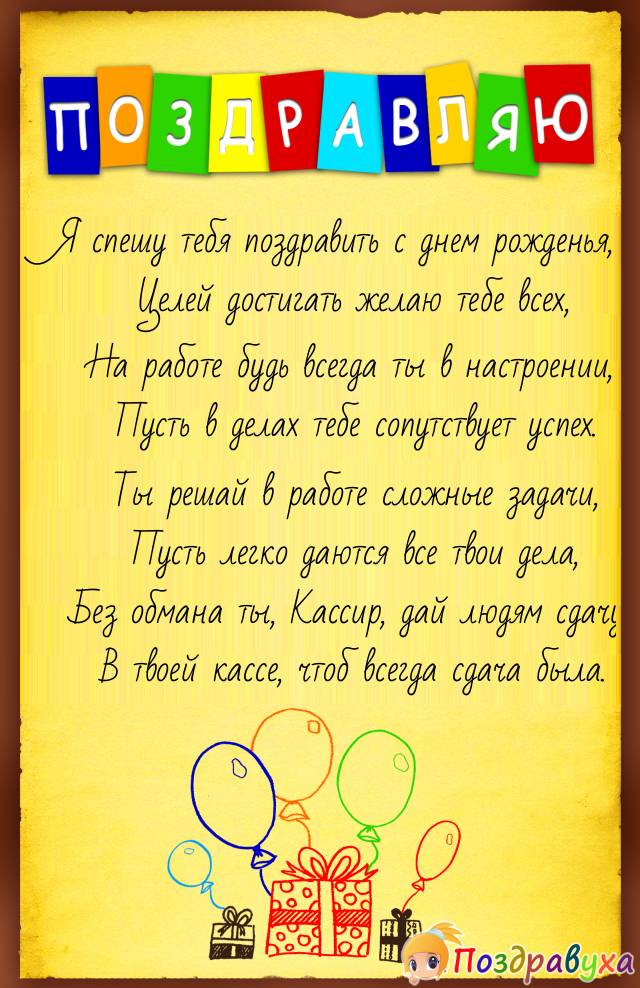 ПОЗДРАВЛЯЮ
Я спешу тебя поздравить с днем рожденья,
Целей достигать желаю тебе всех,
На работе будь всегда ты в настроении,
Пусть в делах тебе сопутствует успех.
Ты решай в работе сложные задачи,
Пусть легко даются все твои дела,
Без обмана ты, Кассир, дай людям сдачу
В твоей кассе, чтоб всегда сдача была.
Поздравуха